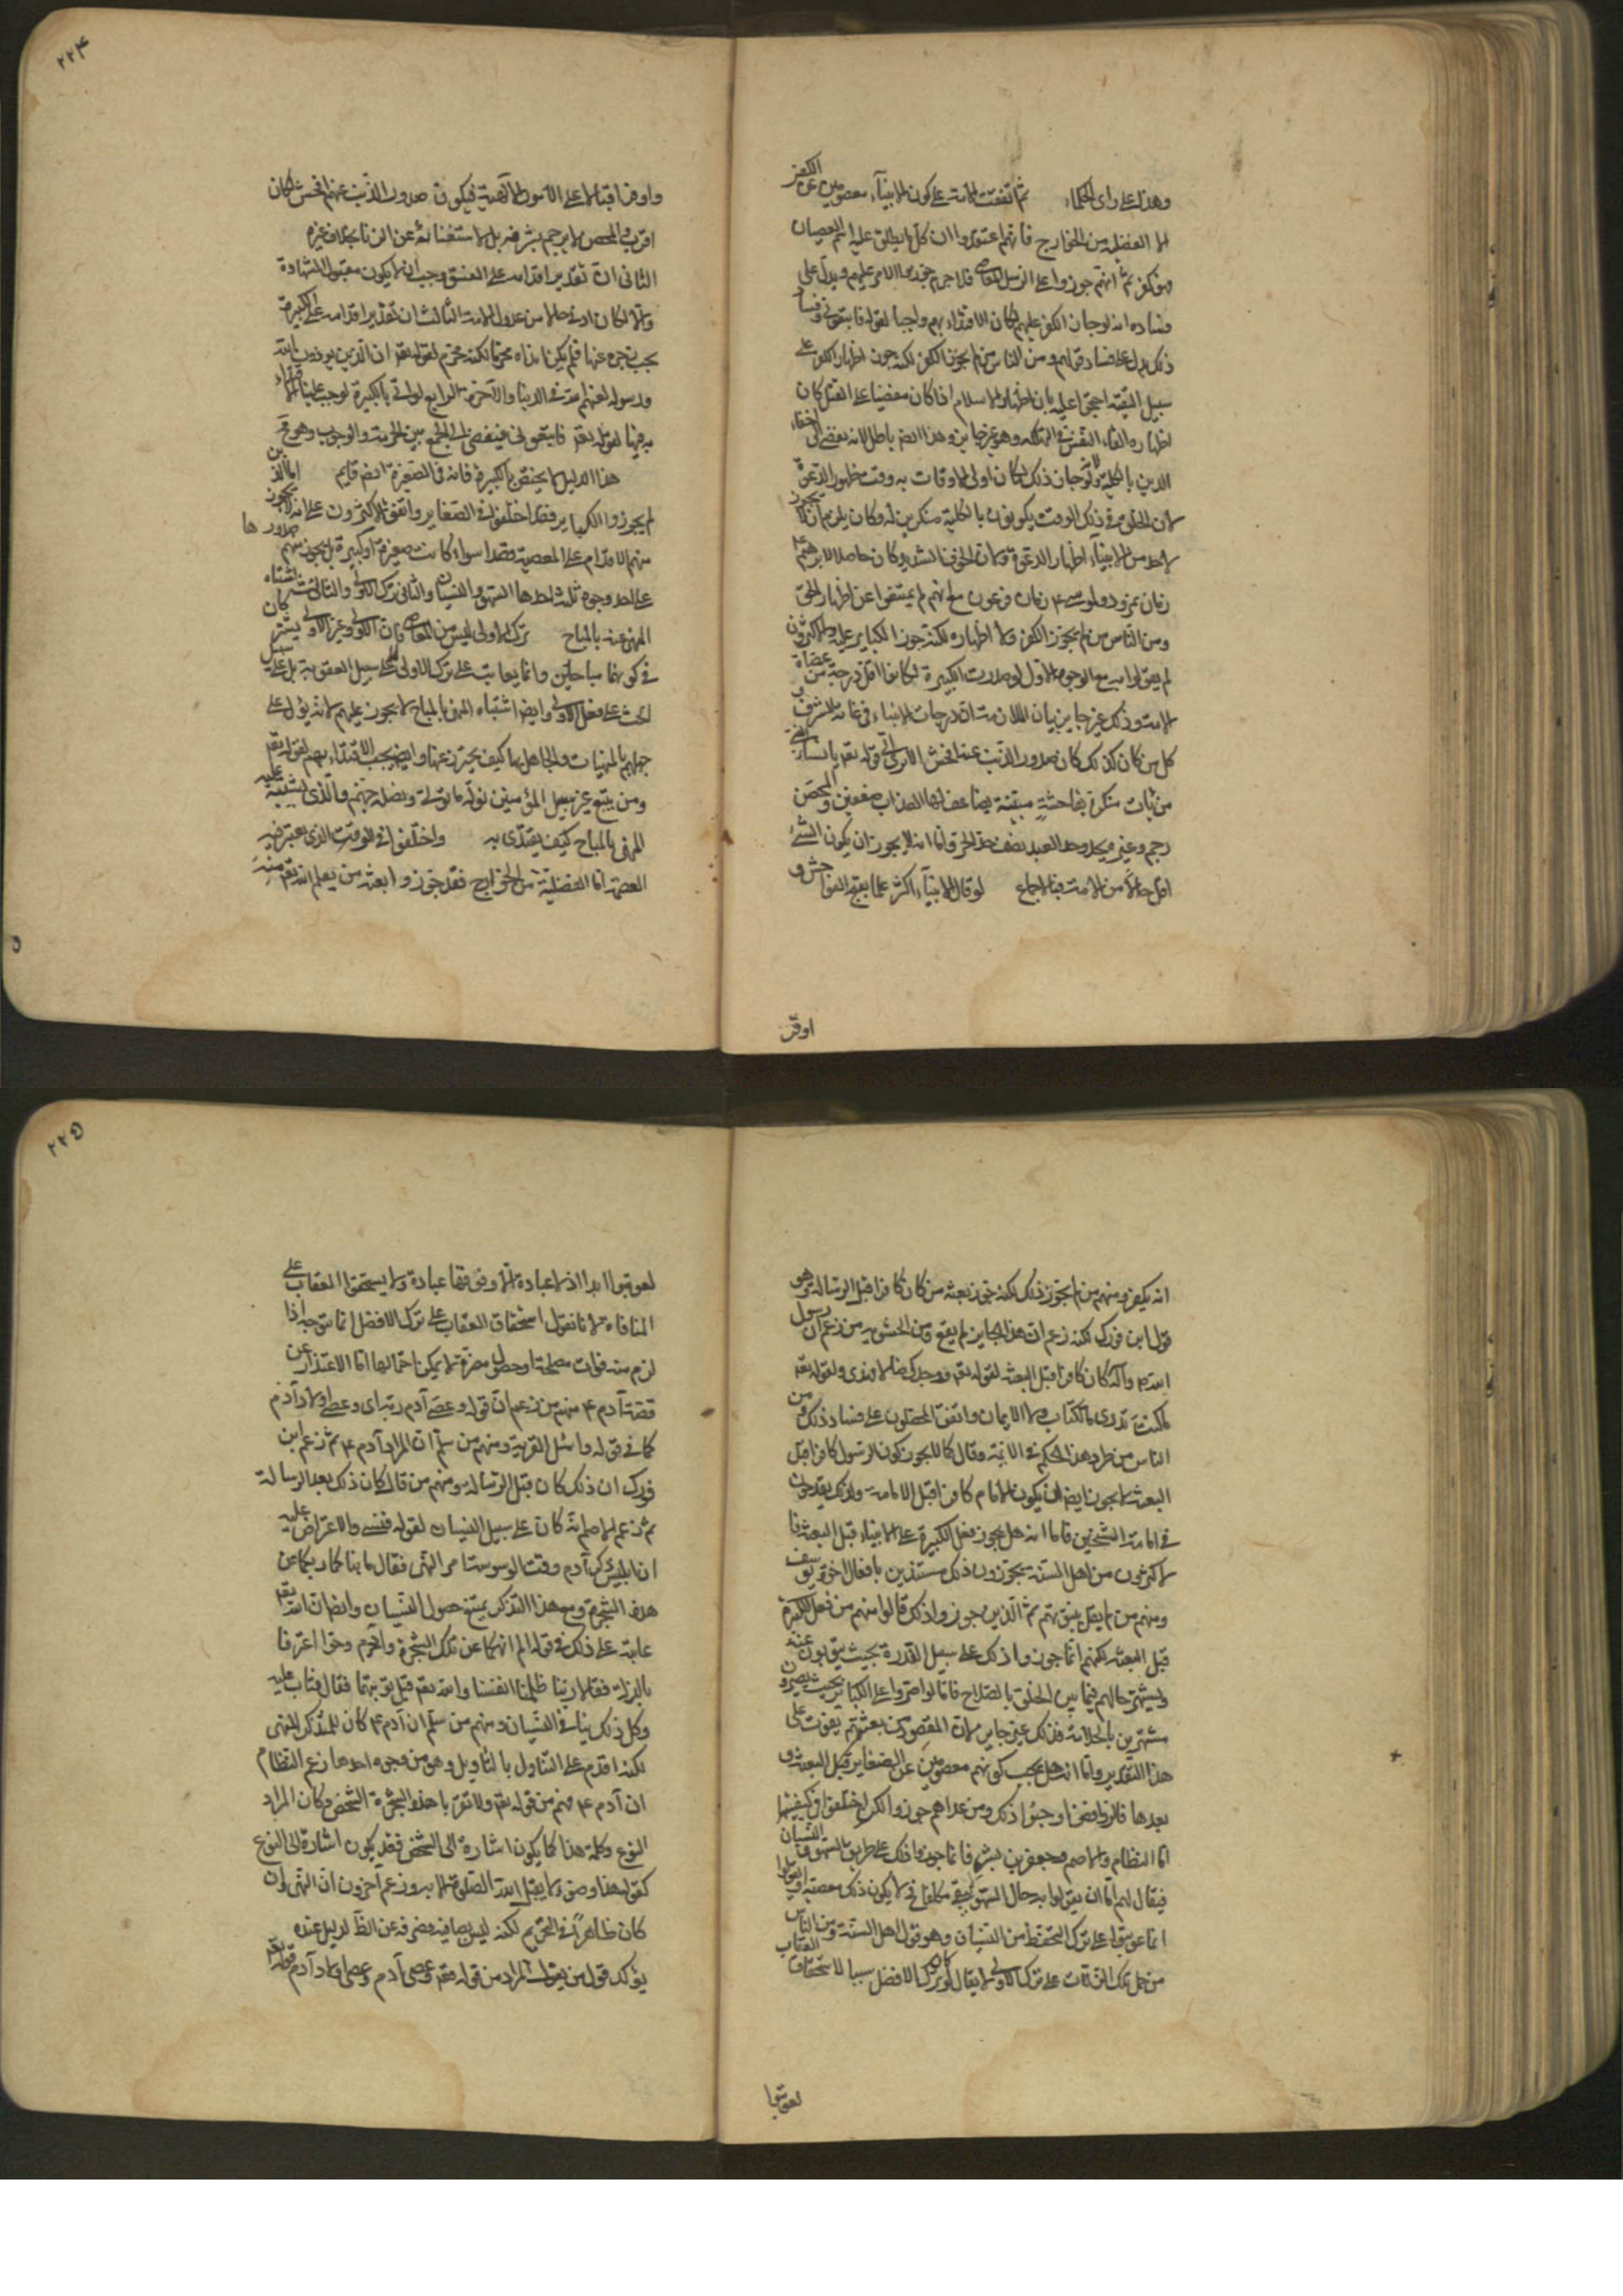 وهذا على راى الحكماء ثم اتفقت الامة على كون الانبياء معصومين عن الكفر
الا الفضلية من الخوارج فانهم اعتقدوا ان كل ما يطلق عليه اسم العصيان
فهو كفر ثم انهم جوزوا على الرسل المعاصى فلا جرم جوزوا الامر عليهم ويدل على
فساده انه لو جاز الكفر عليهم لكان الاقتداء بهم واجبا لقوله فاتبعونى وفساد
ذلك يدل على فساد قولهم ومن الناس من لم يجوز الكفر لكنه جوز اظهار الكفر على
سبيل التقية احتجوا عليه بان اظهار الاسلام اذا كان مفضيا على القتل كان
اظهاره القاء النفس فى التهلكة وهو غير جايز وهذا ايضا باطل لانه يفضى الى اخفاء
الدين بالكلية ولانه لو جاز ذلك لكان اولى الاوقات به وقت ظهور الدعوة
لان الخلق فى ذلك الوقت يكونون بالكلية منكرين له وكان يلزم ان لا يجوز
لاحد من الانبياء اظهار الدعوة ولان الخوف الشديد كان حاصلا لابرهيم ع
زمان نمرود ولموسى ع زمان فرعون مع انهم لم يمتنعوا عن اظهار الحق
ومن الناس من لم يجوز الكفر ولا اظهاره لكنه جوز الكباير عليهم والاكثرون
لم يقولوا به من وجوه الاول لو صدرت الكبيرة لكانوا اقل درجة من عصاة
الامة وذلك غير جايز بيان الملازمة ان درجات الانبياء فى غاية الشرف و
كل من كان كذلك كان صدور الذنب عنه افحش الا ترى الى قوله تعم يا نساء النبى
من يات منكن بفاحشة مبينة يضاعف لها العذاب ضعفين والمحصن
رجم وغيره يحد وحد العبد نصف حد الحر واما انه لا يجوز ان يكون النبى
اقل حالا من الامة فبالاجماع لو قال الانبياء اكثر علما بقبح الفواحش و
اوفر
۲۲۴
واوفر اقبالا على الامور الالهية فيكون صدور الذنب عنهم افحش لكان
اقرب والمحصن لا يرجم بشرفه بل لاستغنائه عن الزنا بخلاف غيره
الثانى ان تقدير اقدامه على الفسق وجب ان لا يكون مقبول الشهادة
والا لكان ادنى حالا من عدول الامة الثالث ان تقدير اقدامه على الكبيرة
يجب زجره عنها فلم يكن ايذاه محرما لكنه محرم لقوله تعم ان الذين يوذون الله
ورسوله لعنهم الله فى الدنيا والآخرة الرابع لو اتى بالكبيرة لوجب علينا الاقتداء
به فيها لقوله تعم فاتبعونى فيفضى الى الجمع بين الحرمة والوجوب وهو مح
هذا الدليل لا يختص بالكبيرة فانه فى الصغيرة ايضا قايم اما الذين
لم يجوزوا الكباير فقد اختلفوا فى الصغاير واتفق الاكثرون على انه لا يجوز
منهم الاقدام على المعصية قصدا سواء كانت صغيرة او كبيرة بل يجوز صدورها منهم
على احد وجوه ثلثة احدها السهو والنسيان والثانى ترك الاولى والثالث اشتباه
المنهى عنه بالمباح ترك الاولى ليس من المعاصى فان الاولى وغير الاولى يشتركان
فى كونهما مباحين وانما يعاتب على ترك الاولى لا على سبيل العقوبة بل على سبيل
الحث على فعل الاولى وايضا اشتباه المنهى بالمباح لا يجوز عليهم لانه يؤل على
جهلهم بالمنهيات والجاهل بها كيف يحترز عنها وايضا يجب الاقتداء بهم لقوله تعم
ومن يتبع غير سبيل المؤمنين نوله ما تولى ونصله جهنم والذى يشتبه عليه
المنهى بالمباح كيف يقتدى به واختلفوا فى الوقت الذى يعتبر فيه
العصمة اما الفضلية من الخوارج فقد جوزوا بعثة من يعلم الله تعم منه
انه يكفر ومنهم من لم يجوز ذلك لكنه جوز بعثة من كان كافرا قبل الرسالة وهو
قول ابن فورك لكنه زعم ان هذا الجايز لم يقع ومن الحشوية من زعم ان رسول
الله ص وآله كان كافرا قبل البعثة لقوله تعم ووجدك ضالا فهدى ولقوله تعم
ما كنت تدرى ما الكتاب ولا الايمان واتفق المحصلون على فساد ذلك ومن
الناس من طرد هذا الحكم فى الائمة وقال كما لا يجوز كون الرسول كافرا قبل
البعثة لا يجوز ايضا ان يكون الامام كافرا قبل الامامة ولذلك يقدحون
فى امامة الشيخين فاما انه هل يجوز فعل الكبيرة على الانبياء قبل البعثة فا
لاكثرون من اهل السنة يجوزون ذلك مستدلين بافعال اخوة يوسف
ومنهم من لا يقول بنبوتهم ثم الذين جوزوا ذلك قالوا منهم من فعل الكبيرة
قبل البعثة لكنهم انما جوزوا ذلك على سبيل القدرة بحيث يتوبون عنه
ويشتهر حالهم فيما بين الخلق بالصلاح فاما لو اصروا على الكباير بحيث يصيرون
مشتهرين بالخلاعة فذلك غير جايز لان المقصود من بعثتهم يفوت على
هذا التقدير واما انه هل يجب كونهم معصومين عن الصغاير قبل البعثة و
بعدها فالروافض اوجبوا ذلك ومن عداهم جوزوا لكن اختلفوا فى كيفيتها
اما النظام والاصم وجعفر بن مبشر فانما جوزوا ذلك على طريق السهو والنسيان
فيقال لهم اما ان يقولوا به حال السهو يبقى مكلفا فح لا يكون ذلك معصية او يقولوا
انما عوتبوا على ترك التحفظ من النسيان وهو قول اهل السنة ومن الناس
من حمل تلك الزلات على ترك الاولى لا يقال لو كان ترك الافضل سببا لاستحقاق العقاب
لعوتبوا
۲۲۵
لعوتبوا ابدا اذ لا عبادة الا وفوقها عبادة ولا يستحقوا العقاب على
المنافاة لانا نقول استحقاق العقاب على ترك الافضل انما يتوجه اذا
لزم منه فوات مصلحة او حصول مضرة لا يمكن احتمالها اما الاعتذار عن
قصة آدم ع منهم من زعم ان قوله وعصى آدم ربه اى وعصى اولاد آدم
كما فى قوله واسئل القرية ومنهم من سلم ان المراد آدم ع ثم زعم ابن
فورك ان ذلك كان قبل الرسالة ومنهم من قال كان ذلك بعد الرسالة
ثم زعم الاصم انه كان على سبيل النسيان لقوله فنسى والاعتراض عليه
ان ابليس ذكر آدم وقت الوسوسة امر النهى فقال ما نهاكما ربكما عن
هذه الشجرة ومع هذا التذكر يمتنع حصول النسيان وايضا ان الله تعم
عاتبه على ذلك فى قوله الم انهكما عن تلك الشجرة وآدم وحوا اعترفا
بالزلة فقالا ربنا ظلمنا انفسنا والله تعم قبل توبتهما فقال فتاب عليه
وكل ذلك ينافى النسيان ومنهم من سلم ان آدم ع كان متذكرا للنهى
لكنه اقدم على التناول بالتاويل وهو من وجوه احدها زعم النظام
ان آدم ع فهم من قوله تعم ولا تقربا هذه الشجرة الشخص وكان المراد
النوع وكلمة هذا كما يكون اشارة الى الشخص فقد يكون اشارة الى النوع
كقوله هذا وضوء لا يقبل الله الصلوة الا به وزعم آخرون ان النهى وان
كان ظاهرا فى التحريم لكنه ليس نصا فيه فصرفه عن الظاهر لدليل عنده
يؤكد قول من يقول المراد من قوله تعم وعصى آدم وعصى اولاد آدم قوله تعم